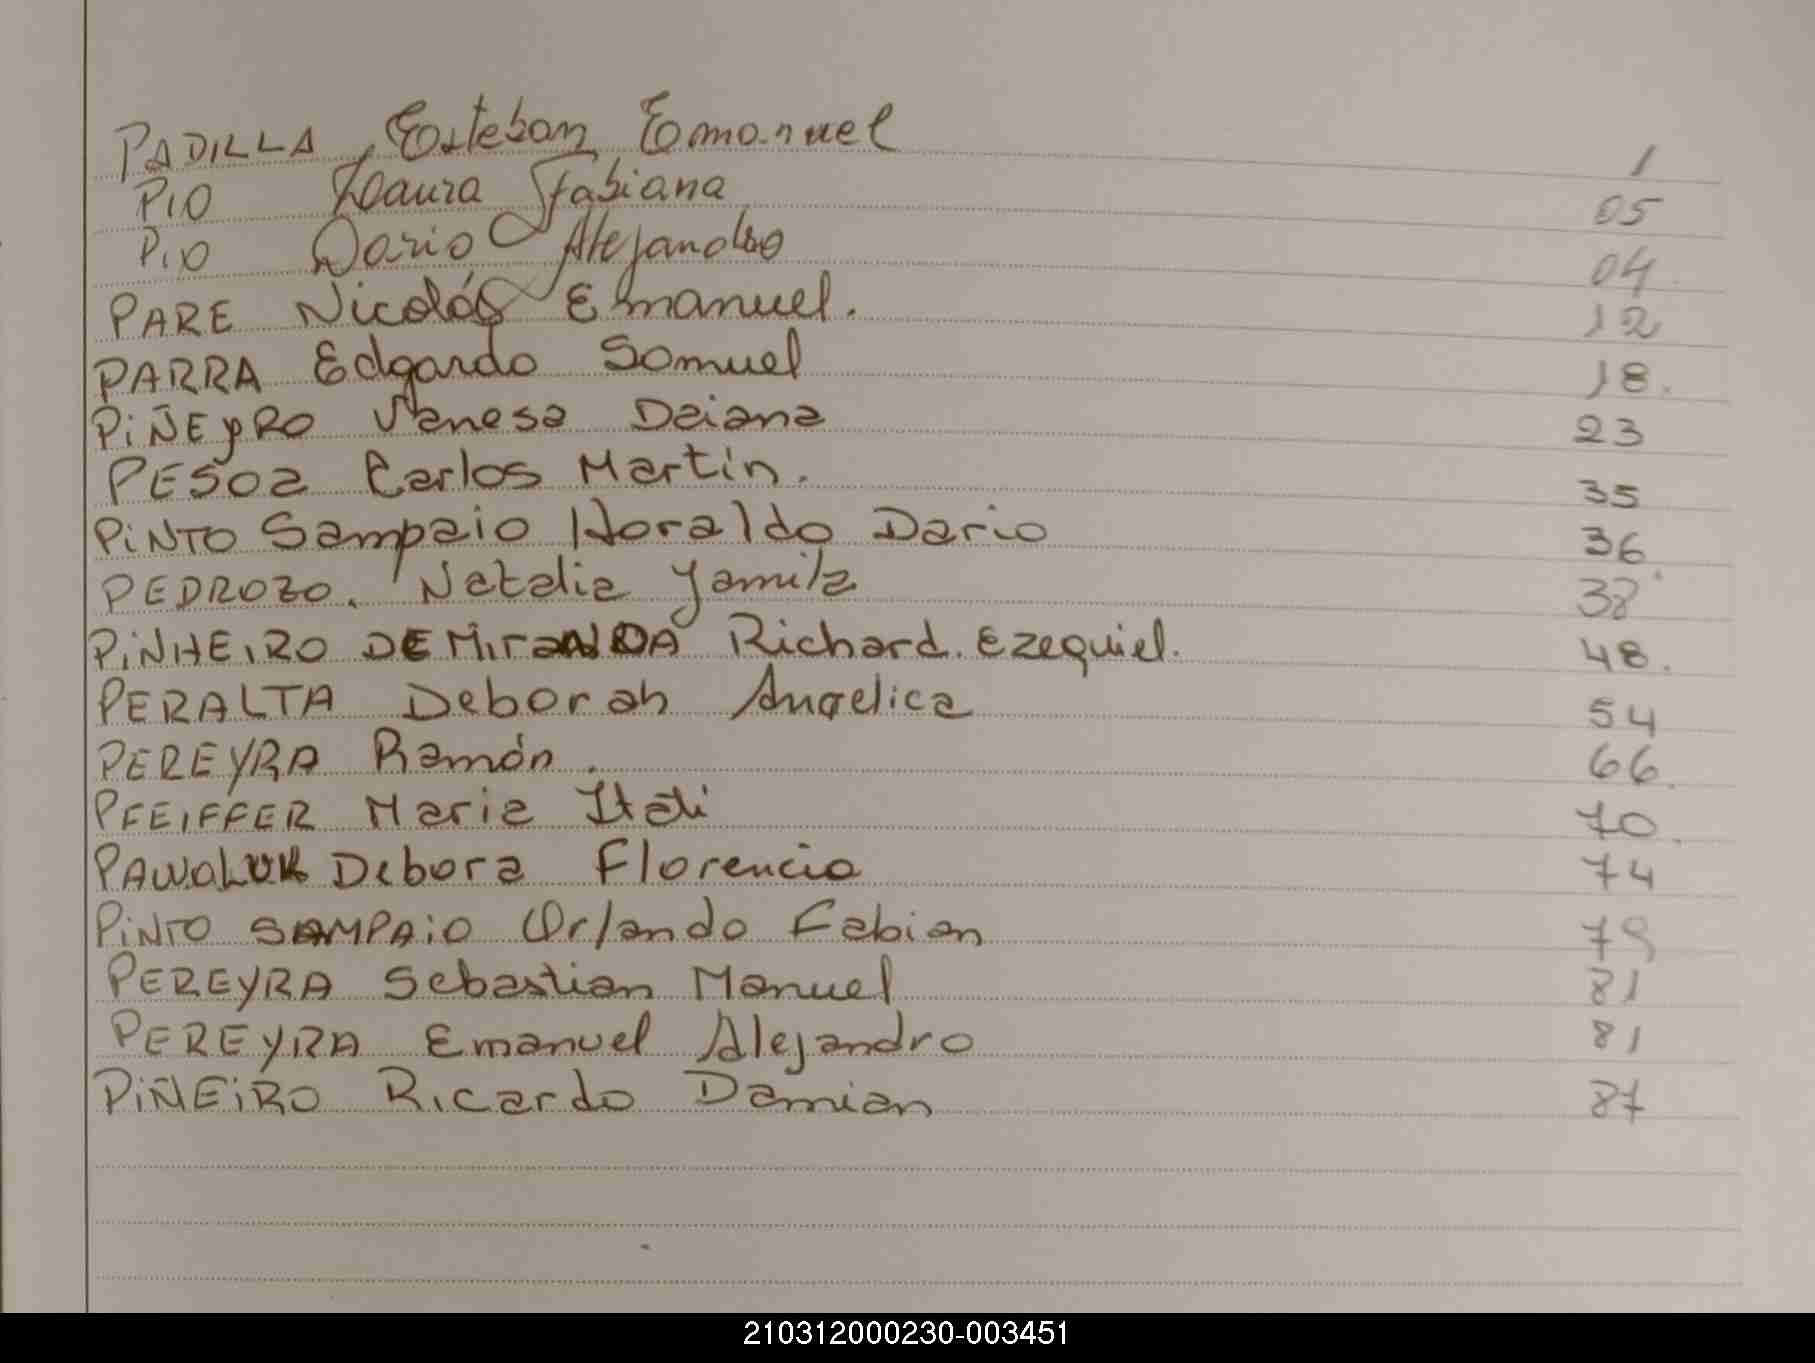 PADILLA, Esteban Emanuel 1
PIO Laura Fabiana 05
PIO Dario Alejandro 04
PARE Nicolás Emanuel. 12
PARRA Edgardo Samuel 18.
PiÑEyRO Vanesa Daiana 23
PESOa Carlos Martin. 35
PiNTO Sampaio Horaldo Dario 36
PEDROZO. Natalia Yamila 38
PiNHEIRO DE MiraNDA Richard. Ezequiel. 48.
PERALTA Deborah Angelica 54
PEREYRA Ramón. 66
PFEIFFER Maria Itati 70
PAWOLUK Debora Florencia 74
PiNTO SAMPAiO Orlando Fabian 79
PEREYRA Sebastian Manuel 81
PEREYRA Emanuel Alejandro 81
PiÑEiRO Ricardo Damian 87
210312000230-003451